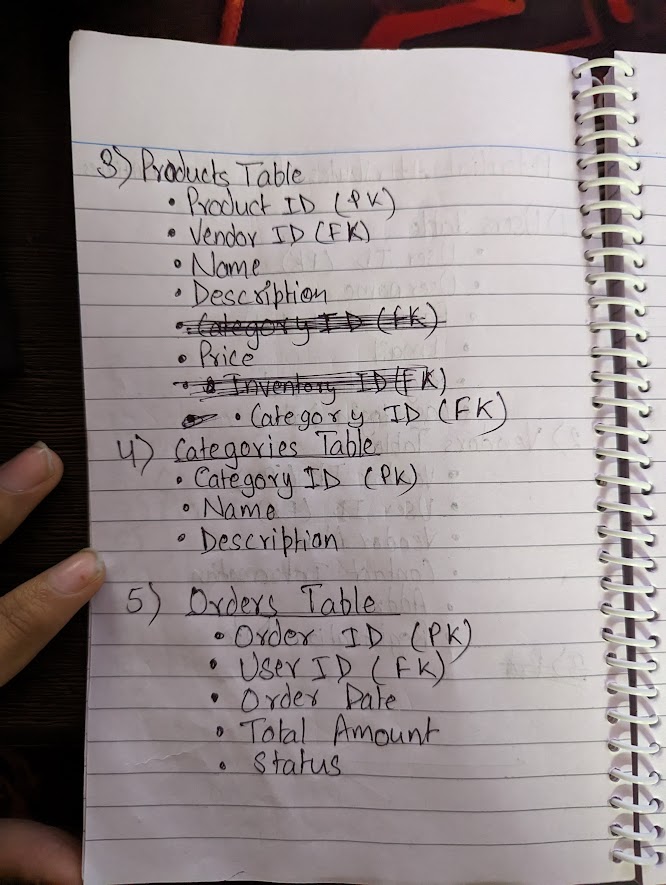 3) Products Table
• Product ID (PK)
• Vendor ID (FK)
• Name
• Description
• Category ID (FK)
• Price
• Inventory ID (FK)
• Category ID (FK)
4) Categories Table
• Category ID (PK)
• Name
• Description
5) Orders Table
• Order ID (PK)
• User ID (FK)
• Order Date
• Total Amount
• Status